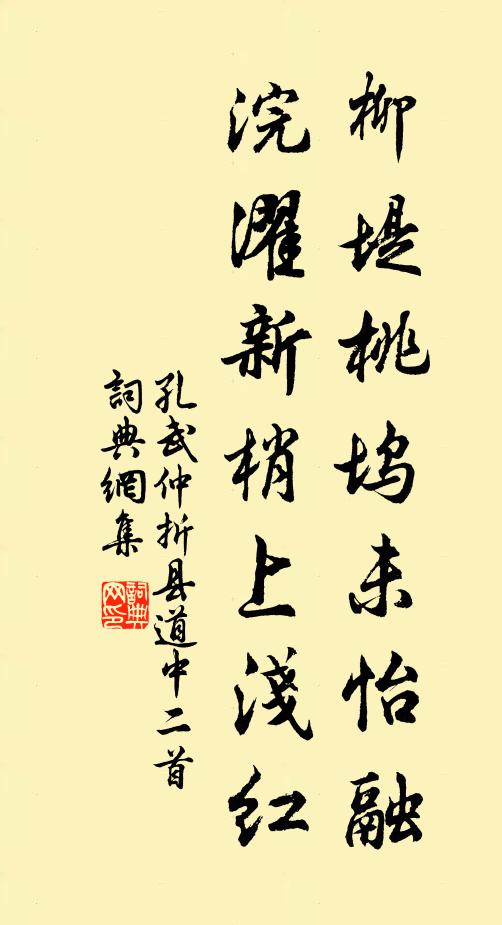 柳堤桃塢未怡融
浣濯新梢上淺紅
孔武仲折县道中二首
詞典網集
詞典网印